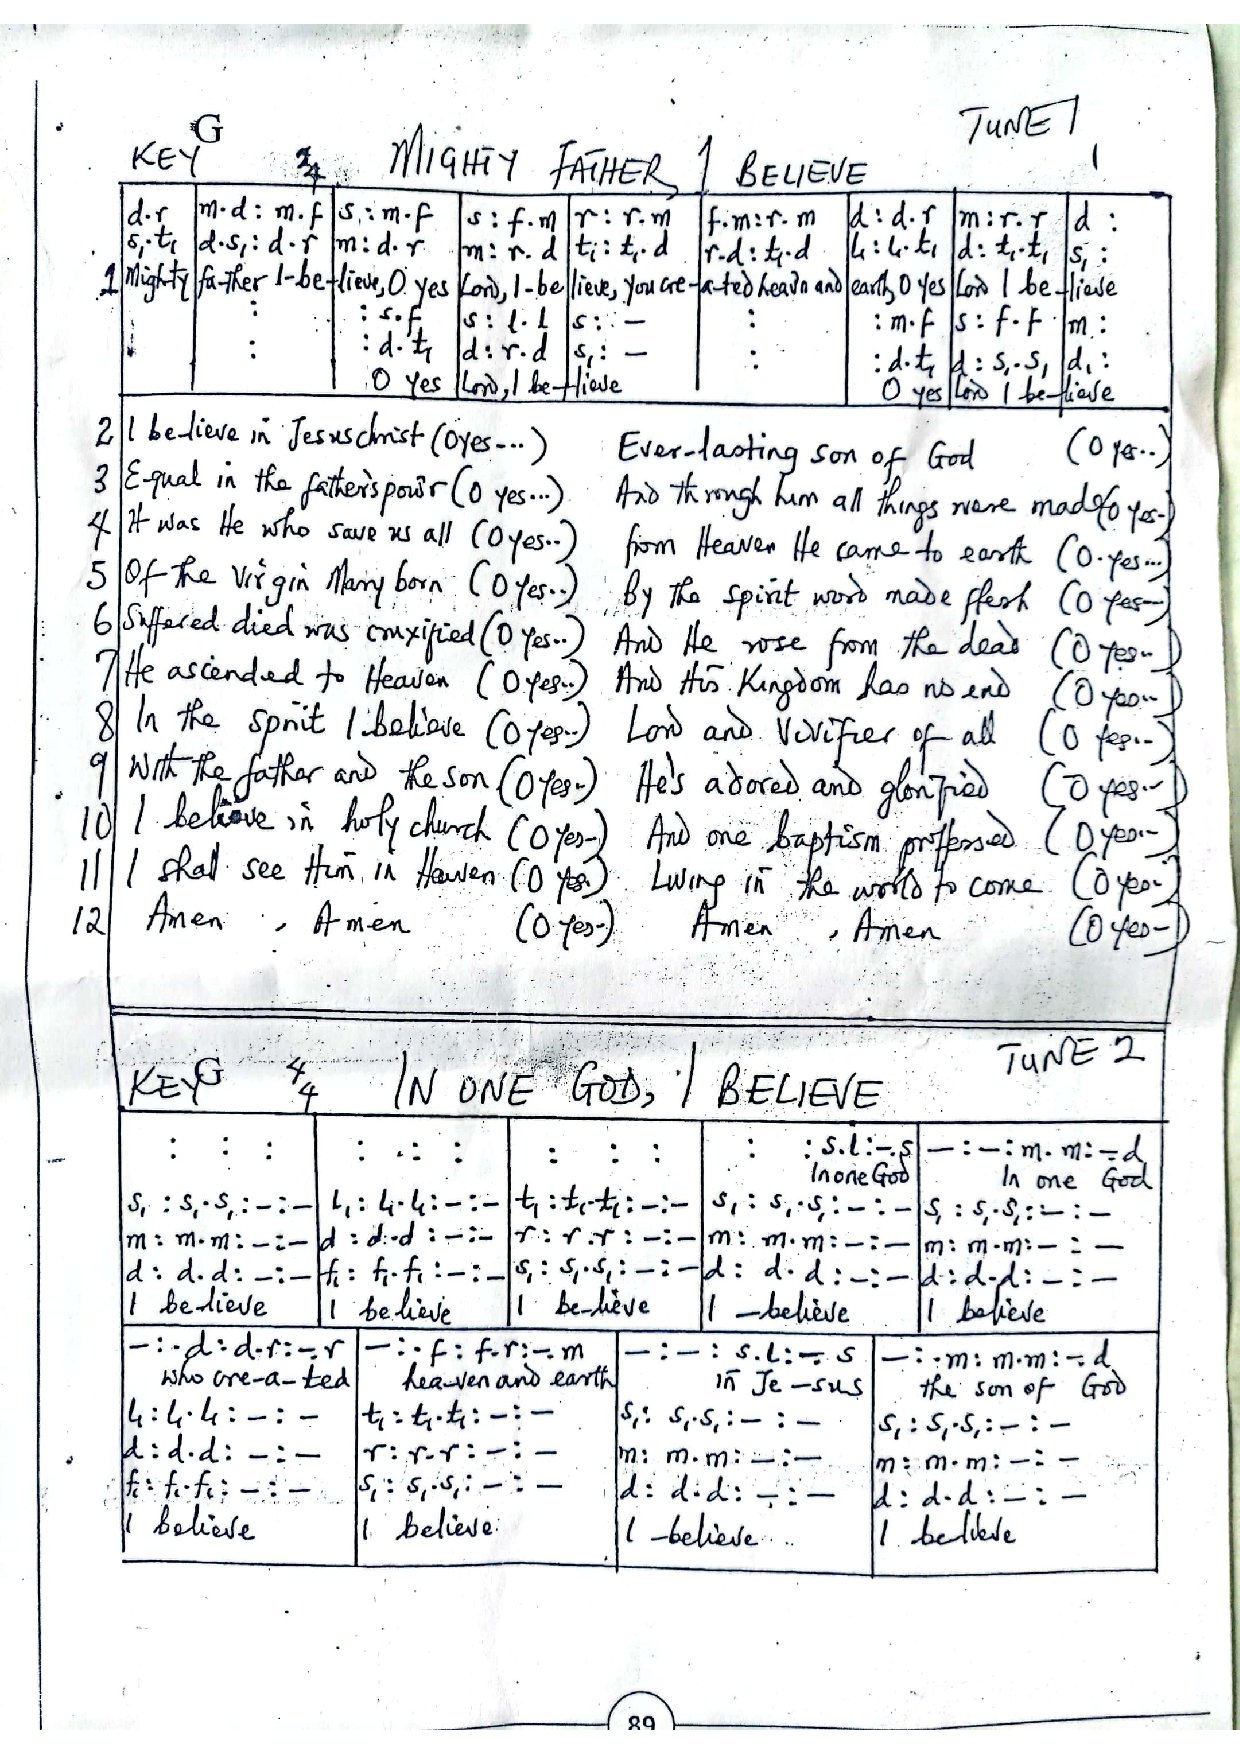 TUNE 1
KEY G 2/4 MIGHTY FATHER, I BELIEVE
1
d.r | m.d: m.f | s: m.f | s: f.m | r: r.m | f.m: r.m | d: d.r | m: r.r | d:
s₁.t₁ | d.s₁: d.r | m: d.r | m: r.d | t₁: t₁.d | r.d: t₁.d | l₁: l₁.t₁ | d: t₁.t₁ | s₁:
1 Mighty | fa-ther I-be- | lieve, O yes | Lord, I-be | lieve, you cre- | a-ted heavn and | earth, O yes | Lord I be- | lieve
: | : s.f | s: l.l | s: - | : | : m.f | s: f.f | m:
: | : d.t₁ | d: r.d | s₁: - | : | : d.t₁ | d: s₁.s₁ | d₁:
O yes | Lord, I be- | lieve O yes | Lord I be- | lieve
2 I believe in Jesus christ (O yes---) Ever-lasting son of God (O yes..)
3 E-qual in the father's pow'r (O yes...) And through him all things were made (O yes-)
4 It was He who save us all (O yes..) from Heaven He came to earth (O.yes...)
5 Of the Virgin Mary born (O yes..) By the spirit word made flesh (O yes--)
6 Suffered died was cruxified (O yes..) And He rose from the dead (O yes..)
7 He ascended to Heaven (O yes..) And His Kingdom has no end (O yes..)
8 In the spirit I believe (O yes..) Lord and Vivifier of all (O yes...)
9 With the father and the son (O yes-) He's adored and glorified (O yes--)
10 I believe in holy church (O yes-) And one baptism proffessed (O yes--)
11 I shall see Him in Heaven (O yes.) Living in the world to come (O yes-)
12 Amen , Amen (O yes-) Amen , Amen (O yes-)
TUNE 2
KEY G 4/4 IN ONE GOD, I BELIEVE
: : : | : .: : | : : : | : : s.l:-.s | -:-: m.m:-.d
In one God | In one God
s₁: s₁.s₁:-:- | l₁: l₁.l₁:-:- | t₁: t₁.t₁:-:- | s₁: s₁.s₁:-:- | s₁: s₁.s₁:-:-
m: m.m:-:- | d: d.d:-:- | r: r.r:-:- | m: m.m:-:- | m: m.m:-:-
d: d.d:-:- | f₁: f₁.f₁:-:- | s₁: s₁.s₁:-:- | d: d.d:-:- | d: d.d:-:-
I be-lieve | I be lieve | I be-lieve | I -believe | I believe
-:-.d: d.r:-.r | -:-.f: f.r:-.m | -:-: s.l:-.s | -:-.m: m.m:-.d
who cre-a-ted | hea-ven and earth | in Je-sus | the son of God
l₁: l₁.l₁:-:- | t₁: t₁.t₁:-:- | s₁: s₁.s₁:-:- | s₁: s₁.s₁:-:-
d: d.d:-:- | r: r.r:-:- | m: m.m:-:- | m: m.m:-:-
f₁: f₁.f₁:-:- | s₁: s₁.s₁:-:- | d: d.d:-:- | d: d.d:-:-
I believe | I believe. | I -believe .. | I believe
89